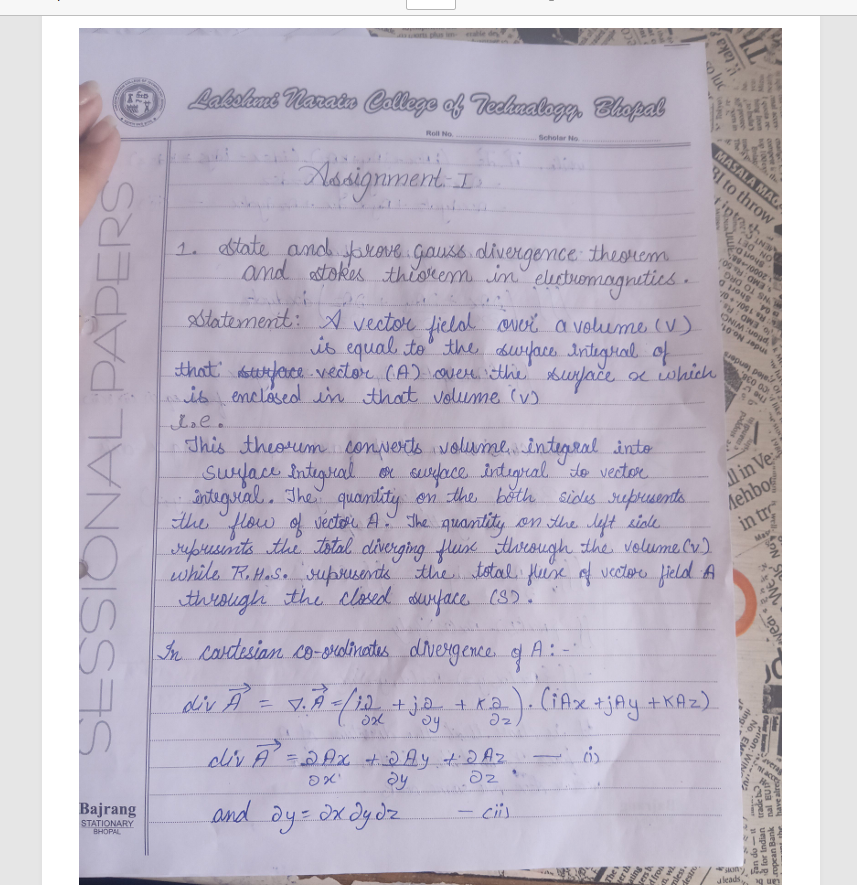 Lakshmi Narain College of Technology, Bhopal
Roll No. Scholar No.
SESSIONAL PAPERS
Assignment-I
1. State and prove gauss divergence theorem
and stokes theorem in electromagnetics.
Statement: A vector field over a volume (V)
is equal to the surface integral of
that surface vector (A) over the surface
is enclosed in that volume (V)
i.e.
This theorem converts volume integral into
surface integral or surface integral to vector
integral. The quantity on the both sides represents
the flow of vector A. The quantity on the left side
represents the total diverging flux through the volume (V)
while R.H.S. represents the total flux of vector field A
through the closed surface (S).
In cartesian co-ordinates divergence of A:-
div A⃗ = ∇.A⃗ = (i∂/∂x + j∂/∂y + k∂/∂z).(iAx + jAy + KAz)
div A⃗ = ∂Ax/∂x + ∂Ay/∂y + ∂Az/∂z — (i)
and ∂y = ∂x∂y∂z — (ii)
Bajrang
STATIONARY
BHOPAL
MASALA MAG
to throw
in tr